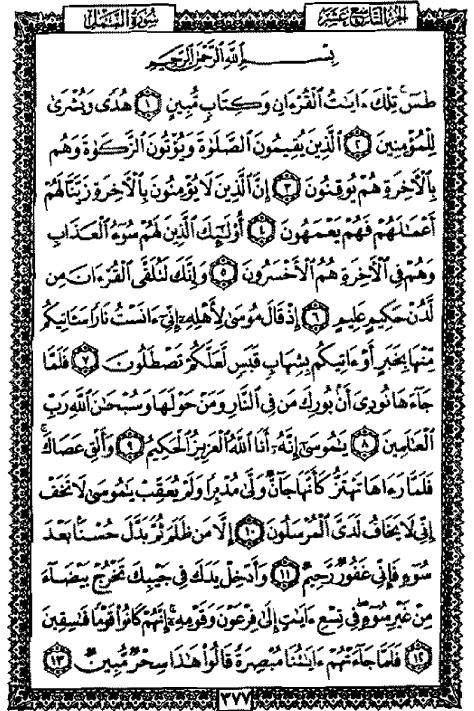 الجزء التاسع عشر
سورة النمل
بسم الله الرحمن الرحيم
طسٓ ۚ تِلْكَ ءَايَٰتُ ٱلْقُرْءَانِ وَكِتَابٍ مُّبِينٍ ١ هُدًى وَبُشْرَىٰ
لِلْمُؤْمِنِينَ ٢ ٱلَّذِينَ يُقِيمُونَ ٱلصَّلَوٰةَ وَيُؤْتُونَ ٱلزَّكَوٰةَ وَهُم
بِٱلْـَٔاخِرَةِ هُمْ يُوقِنُونَ ٣ إِنَّ ٱلَّذِينَ لَا يُؤْمِنُونَ بِٱلْـَٔاخِرَةِ زَيَّنَّا لَهُمْ
أَعْمَٰلَهُمْ فَهُمْ يَعْمَهُونَ ٤ أُو۟لَٰٓئِكَ ٱلَّذِينَ لَهُمْ سُوٓءُ ٱلْعَذَابِ
وَهُمْ فِى ٱلْـَٔاخِرَةِ هُمُ ٱلْأَخْسَرُونَ ٥ وَإِنَّكَ لَتُلَقَّى ٱلْقُرْءَانَ مِن
لَّدُنْ حَكِيمٍ عَلِيمٍ ٦ إِذْ قَالَ مُوسَىٰ لِأَهْلِهِۦٓ إِنِّىٓ ءَانَسْتُ نَارًا سَـَٔاتِيكُم
مِّنْهَا بِخَبَرٍ أَوْ ءَاتِيكُم بِشِهَابٍ قَبَسٍ لَّعَلَّكُمْ تَصْطَلُونَ ٧ فَلَمَّا
جَآءَهَا نُودِىَ أَنۢ بُورِكَ مَن فِى ٱلنَّارِ وَمَنْ حَوْلَهَا وَسُبْحَٰنَ ٱللَّهِ رَبِّ
ٱلْعَٰلَمِينَ ٨ يَٰمُوسَىٰٓ إِنَّهُۥٓ أَنَا ٱللَّهُ ٱلْعَزِيزُ ٱلْحَكِيمُ ٩ وَأَلْقِ عَصَاكَ ۚ
فَلَمَّا رَءَاهَا تَهْتَزُّ كَأَنَّهَا جَآنٌّ وَلَّىٰ مُدْبِرًا وَلَمْ يُعَقِّبْ ۚ يَٰمُوسَىٰ لَا تَخَفْ
إِنِّى لَا يَخَافُ لَدَىَّ ٱلْمُرْسَلُونَ ١٠ إِلَّا مَن ظَلَمَ ثُمَّ بَدَّلَ حُسْنًۢا بَعْدَ
سُوٓءٍ فَإِنِّى غَفُورٌ رَّحِيمٌ ١١ وَأَدْخِلْ يَدَكَ فِى جَيْبِكَ تَخْرُجْ بَيْضَآءَ
مِنْ غَيْرِ سُوٓءٍ ۖ فِى تِسْعِ ءَايَٰتٍ إِلَىٰ فِرْعَوْنَ وَقَوْمِهِۦٓ ۚ إِنَّهُمْ كَانُوا۟ قَوْمًا فَٰسِقِينَ
١٢ فَلَمَّا جَآءَتْهُمْ ءَايَٰتُنَا مُبْصِرَةً قَالُوا۟ هَٰذَا سِحْرٌ مُّبِينٌ ١٣
٣٧٧